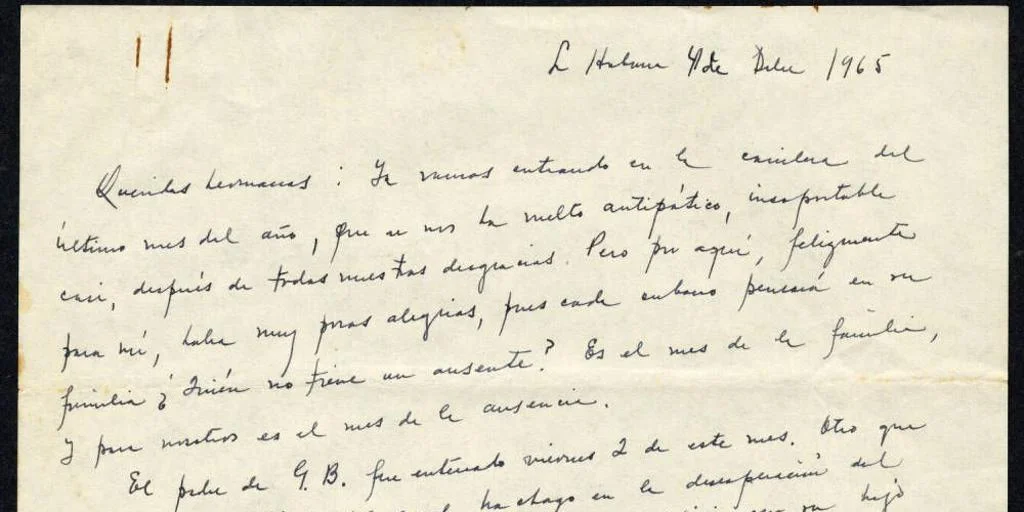 L Habana 4 de Dbre 1965
Queridas hermanas: Ya vamos entrando en la carrilera del
último mes del año, que se nos ha vuelto antipático, insoportable
casi, después de todas nuestras desgracias. Pero por aquí, felizmente
para mí, habrá muy pocas alegrías, pues cada cubano pensará en su
familia ¿Quién no tiene un ausente? Es el mes de la familia,
y para nosotros es el mes de la ausencia.
El padre de G. B. fue enterrado viernes 2 de este mes. Otro que
hachazo en la desesperación del
su hijo